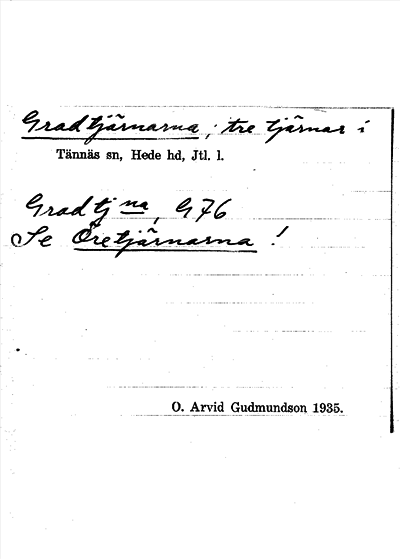 Gradtjärnarna; tre tjärnar i
Tännäs sn, Hede hd, Jtl. l.
Gradtj na, G76
Se Öretjärnarna!
O. Arvid Gudmundson 1935.